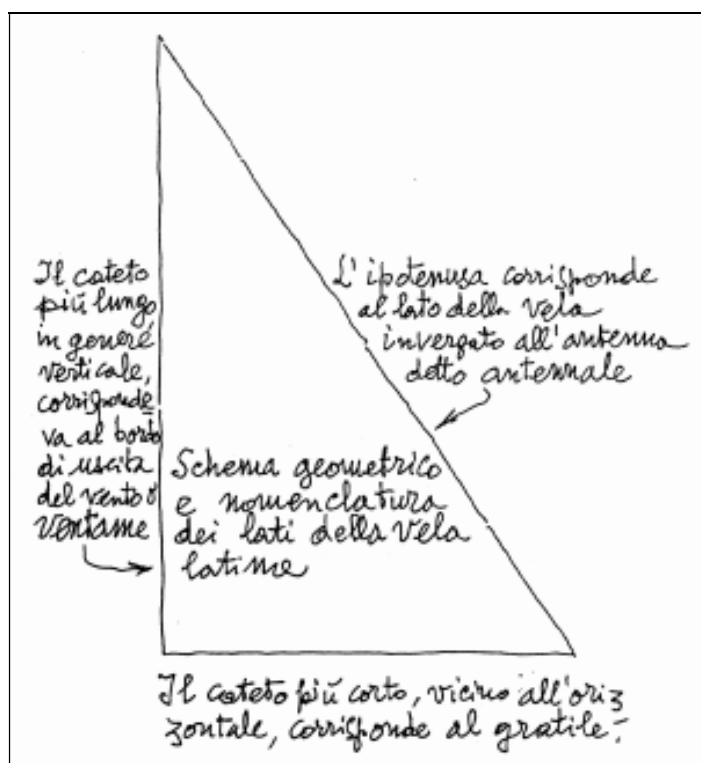 Il cateto
più lungo
in genere
verticale,
corrisponde
va al bordo
di uscita
del vento o
ventame
L'ipotenusa corrisponde
al lato della vela
invergato all'antenna
detto antennale
Schema geometrico
e nomenclatura
dei lati della vela
latine
Il cateto più corto, vicino all'oriz
zontale, corrisponde al gratile.